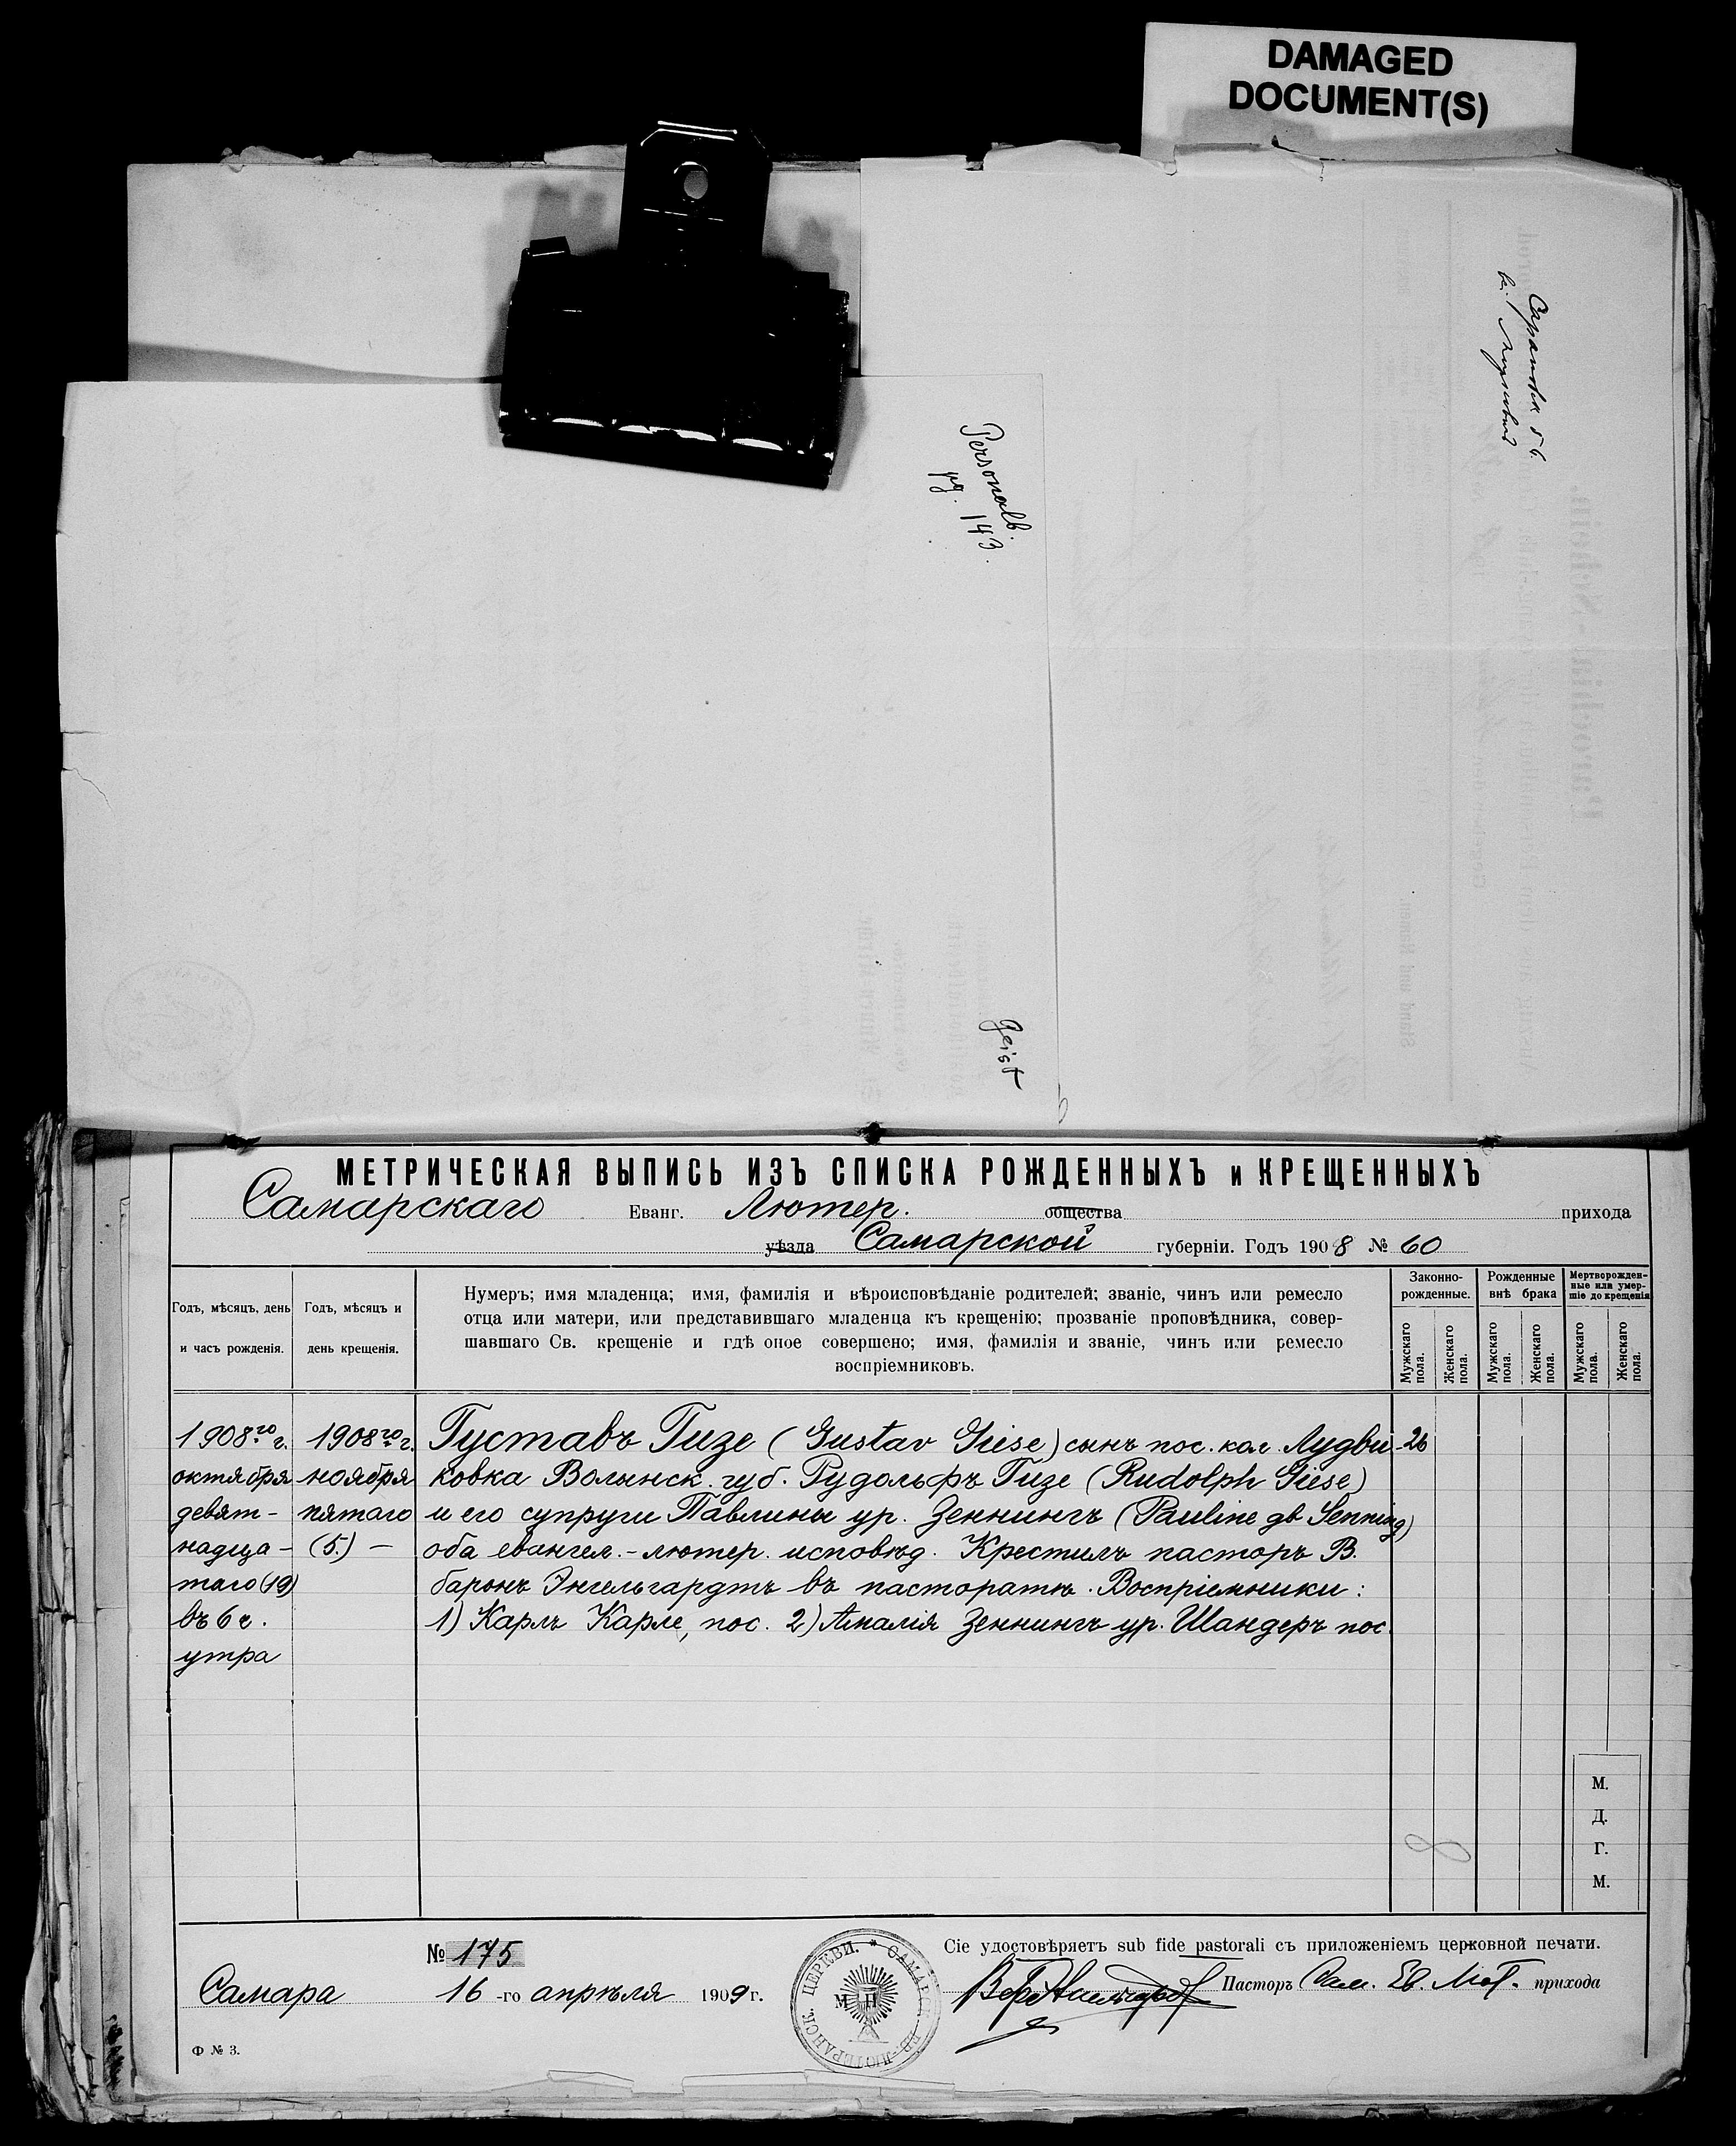 DAMAGED
DOCUMENT(S)
Personalb.
pg. 143.
Geist
МЕТРИЧЕСКАЯ ВЫПИСЬ ИЗЪ СПИСКА РОЖДЕННЫХЪ и КРЕЩЕННЫХЪ
Самарскаго Еванг. Лютер. общества прихода
уѣзда Самарской губерніи. Годъ 1908 № 60
Годъ, мѣсяцъ, день
и часъ рожденія.
Годъ, мѣсяцъ и
день крещенія.
Нумеръ; имя младенца; имя, фамилія и вѣроисповѣданіе родителей; званіе, чинъ или ремесло
отца или матери, или представившаго младенца къ крещенію; прозваніе проповѣдника, совер-
шавшаго Св. крещеніе и гдѣ оное совершено; имя, фамилія и званіе, чинъ или ремесло
воспріемниковъ.
Законно-
рожденные.
Рожденные
внѣ брака
Мертворожден-
ные или умер-
шіе до крещенія
Мужскаго
пола.
Женскаго
пола.
Мужскаго
пола.
Женскаго
пола.
Мужскаго
пола.
Женскаго
пола.
1908го г.
октября
девят-
надца-
таго (19)
въ 6 ч.
утра
1908го г.
ноября
пятаго
(5.) —
Густавъ Гизе (Gustav Giese) сынъ пос. кол. Лудви-
ковка Волынск. губ. Рудольфъ Гизе (Rudolph Giese)
и его супруги Павлины ур. Зеннингъ (Pauline gb Senning)
оба евангел.-лютер. исповѣд. Крестилъ пасторъ В.
баронъ Энгельгардтъ въ пасторатѣ. Воспріемники:
1) Карлъ Карле, пос. 2) Амалія Зеннингъ ур. Шандеръ пос.
26
М.
Д.
Г.
М.
№ 175
Самара 16-го апрѣля 1909 г.
Сіе удостовѣряетъ sub fide pastorali съ приложеніемъ церковной печати.
Пасторъ Сам. Ев. Лют. прихода
Ф № 3.